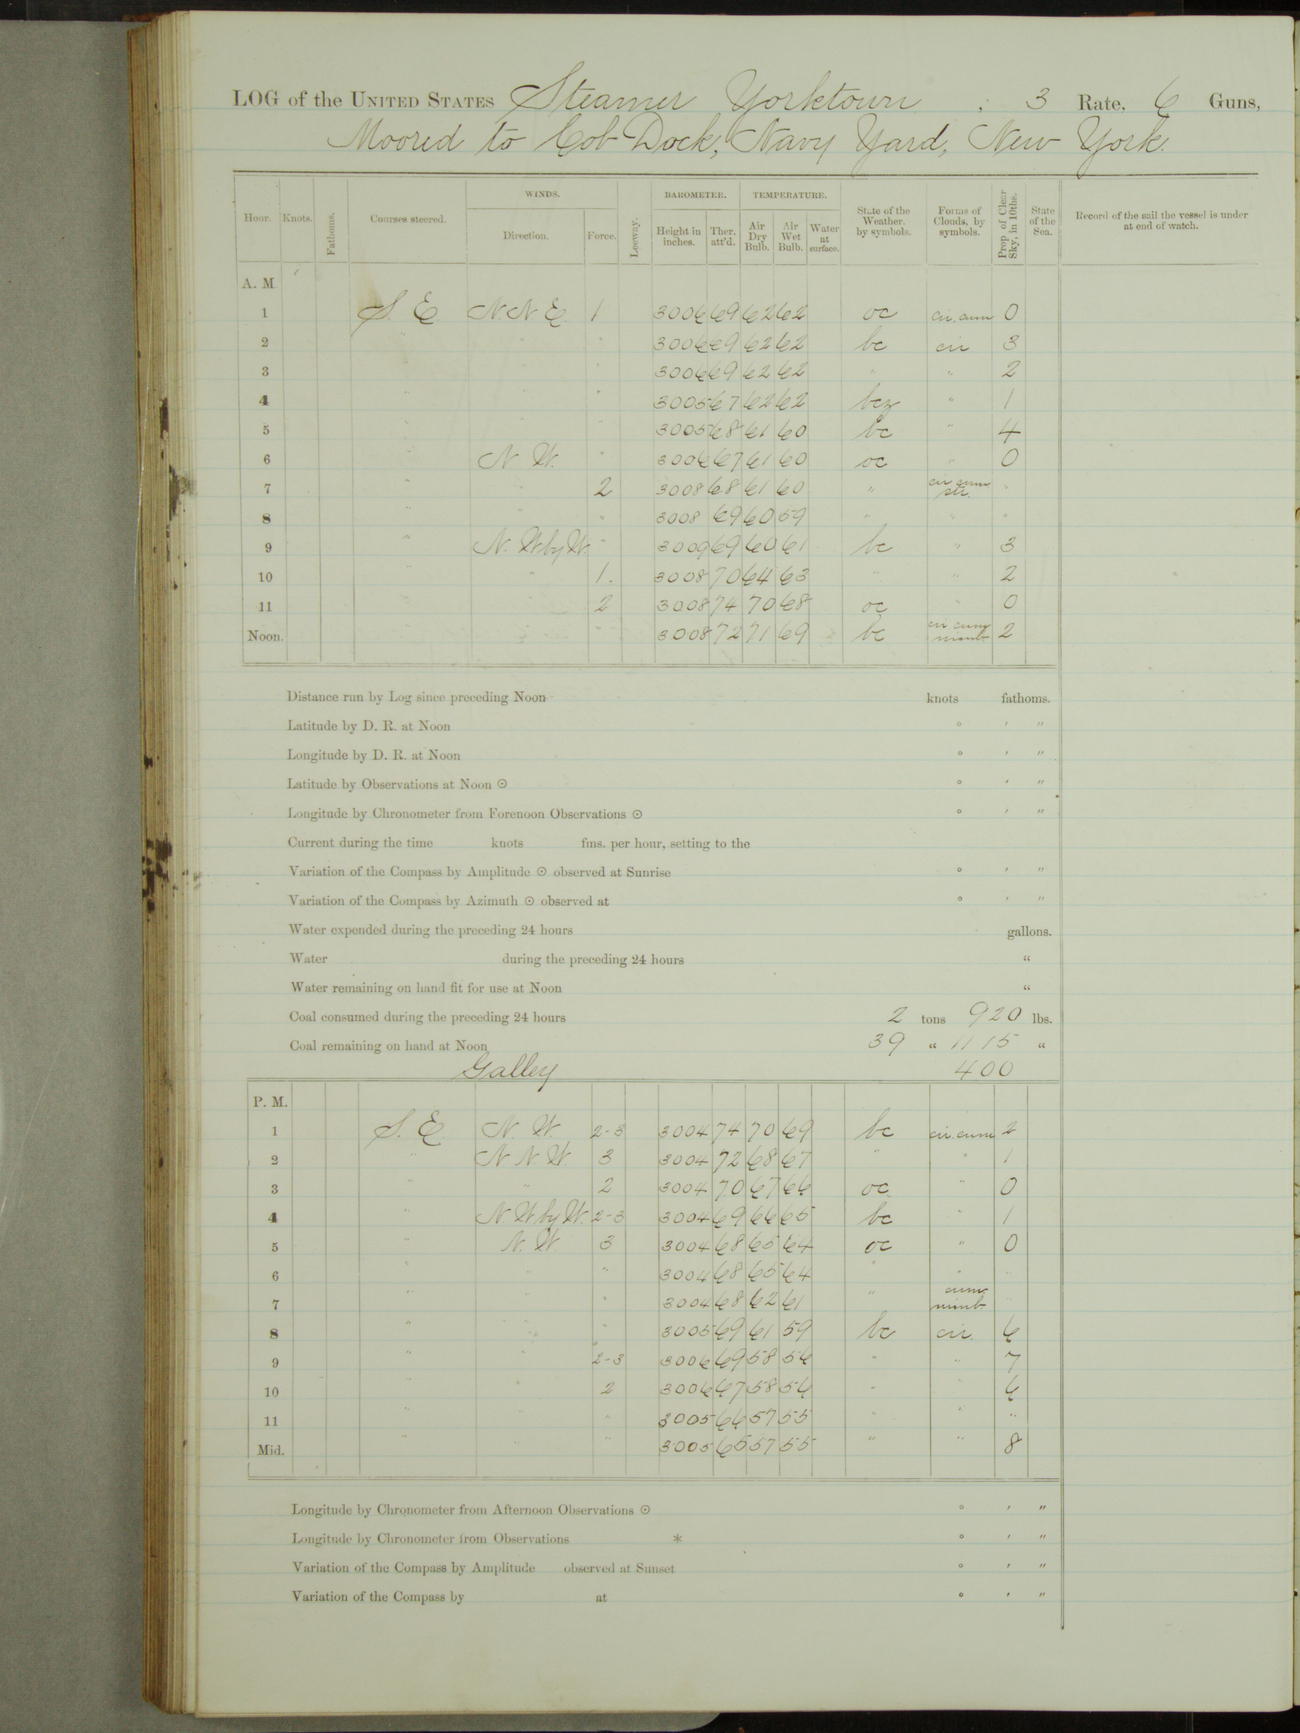 LOG of the UNITED STATES Steamer Yorktown, 3 Rate, 6 Guns,
Moored to Cob Dock, Navy Yard, New York.
WINDS. BAROMETER. TEMPERATURE.
Hour. Knots. Fathoms. Courses steered. Direction. Force. Leeway. Height in inches. Ther. att'd. Air Dry Bulb. Air Wet Bulb. Water at surface. State of the Weather. by symbols. Forms of Clouds, by symbols. Prop. of Clear Sky, in 10ths. State of the Sea. Record of the sail the vessel is under at end of watch.
A. M.
1 S. E. N.N.E. 1 3006 69 62 62 oc cir. cum 0
2 " " 3006 69 62 62 bc cir 3
3 " " 3006 69 62 62 " " 2
4 " " " 3005 67 62 62 bcz " 1
5 " " " 3005 68 61 60 bc " 4
6 " N. W. " 3006 67 61 60 oc " 0
7 " " 2 3008 68 61 60 " cir cum str. "
8 " " " 3008 69 60 59 " " "
9 " N. W by W. " 3009 69 60 61 bc " 3
10 " " 1. 3008 70 64 63 " " 2
11 " " 2 3008 74 70 68 oc " 0
Noon. " " " 3008 72 71 69 bc cir cum nimb 2
Distance run by Log since preceding Noon knots fathoms.
Latitude by D. R. at Noon ° ' "
Longitude by D. R. at Noon ° ' "
Latitude by Observations at Noon ⊙ ° ' "
Longitude by Chronometer from Forenoon Observations ⊙ ° ' "
Current during the time knots fms. per hour, setting to the
Variation of the Compass by Amplitude ⊙ observed at Sunrise ° ' "
Variation of the Compass by Azimuth ⊙ observed at ° ' "
Water expended during the preceding 24 hours gallons.
Water during the preceding 24 hours "
Water remaining on hand fit for use at Noon "
Coal consumed during the preceding 24 hours 2 tons 920 lbs.
Coal remaining on hand at Noon 39 " 1115 "
Galley 400
P. M.
1 S. E. N. W. 2-3 3004 74 70 69 bc cir. cum 2
2 " N N W. 3 3004 72 68 67 " " 1
3 " " 2 3004 70 67 66 oc. " 0
4 " N. W by W. 2-3 3004 69 66 65 bc " 1
5 " N. W 3 3004 68 65 64 oc " 0
6 " " " 3004 68 65 64 " " "
7 " " " 3004 68 62 61 " cum nimb "
8 " " " 3005 69 61 59 bc cir. 6
9 " " 2-3 3006 69 58 56 " " 7
10 " 2 3006 67 58 56 " " 6
11 " " " 3005 66 57 55 " " "
Mid. " " " 3005 65 57 55 " " 8
Longitude by Chronometer from Afternoon Observations ⊙ ° ' "
Longitude by Chronometer from Observations * ° ' "
Variation of the Compass by Amplitude observed at Sunset ° ' "
Variation of the Compass by at ° ' "